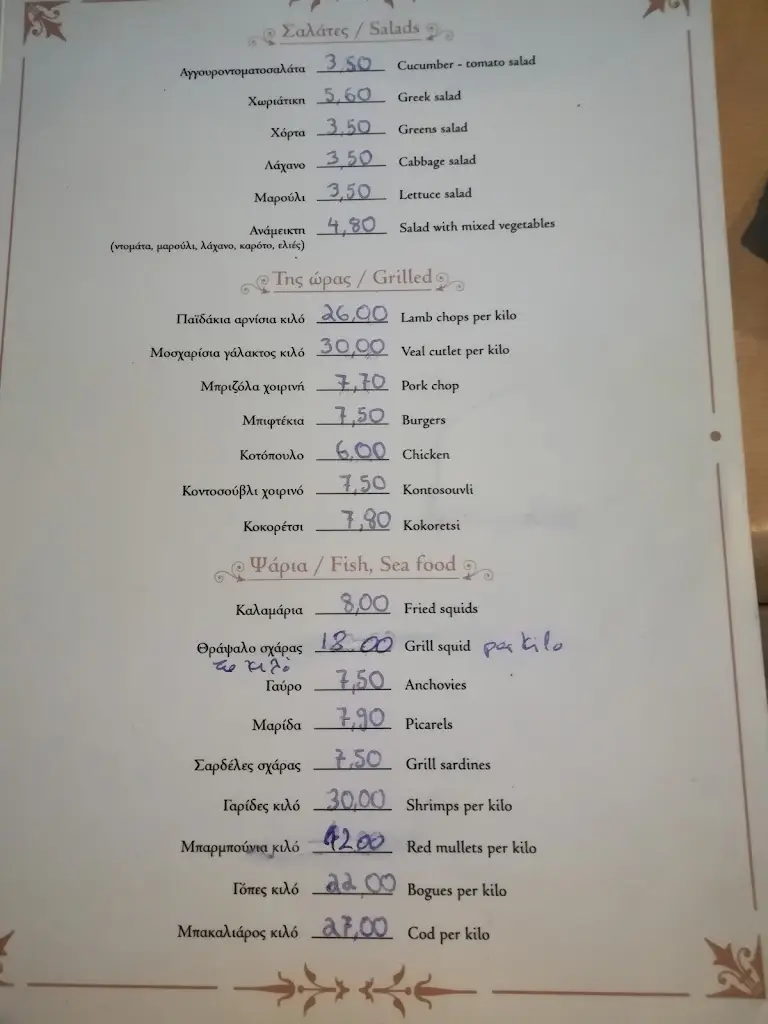 Σαλάτες / Salads
Αγγουροντοματοσαλάτα 3,50 Cucumber - tomato salad
Χωριάτικη 5,60 Greek salad
Χόρτα 3,50 Greens salad
Λάχανο 3,50 Cabbage salad
Μαρούλι 3,50 Lettuce salad
Ανάμεικτη 4,80 Salad with mixed vegetables
(ντομάτα, μαρούλι, λάχανο, καρότο, ελιές)
Της ώρας / Grilled
Παϊδάκια αρνίσια κιλό 26,00 Lamb chops per kilo
Μοσχαρίσια γάλακτος κιλό 30,00 Veal cutlet per kilo
Μπριζόλα χοιρινή 7,70 Pork chop
Μπιφτέκια 7,50 Burgers
Κοτόπουλο 6,00 Chicken
Κοντοσούβλι χοιρινό 7,50 Kontosouvli
Κοκορέτσι 7,80 Kokoretsi
Ψάρια / Fish, Sea food
Καλαμάρια 8,00 Fried squids
Θράψαλο σχάρας 18.00 Grill squid per kilo
το κιλό
Γαύρο 7,50 Anchovies
Μαρίδα 7,90 Picarels
Σαρδέλες σχάρας 7,50 Grill sardines
Γαρίδες κιλό 30,00 Shrimps per kilo
Μπαρμπούνια κιλό 42.00 Red mullets per kilo
Γόπες κιλό 22,00 Bogues per kilo
Μπακαλιάρος κιλό 27,00 Cod per kilo